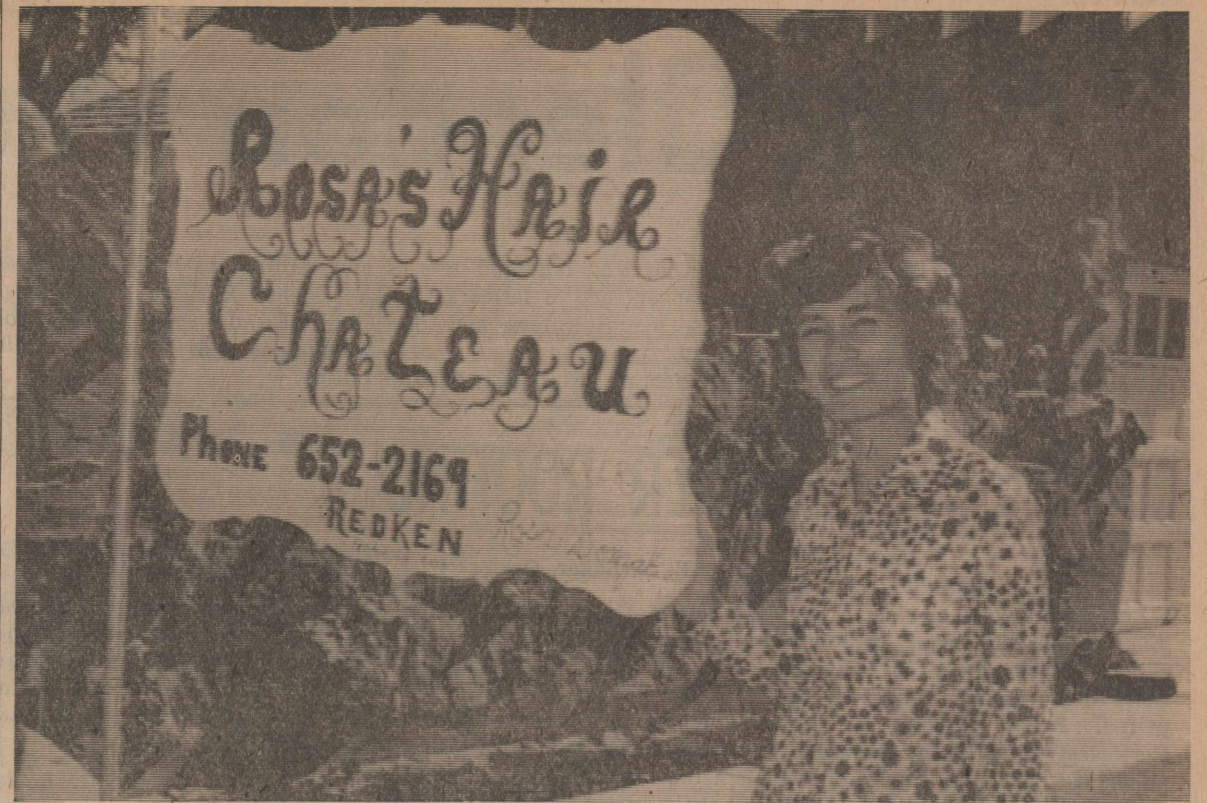 Rosa's Hair
Chateau
Phone 652-2169
REDKEN